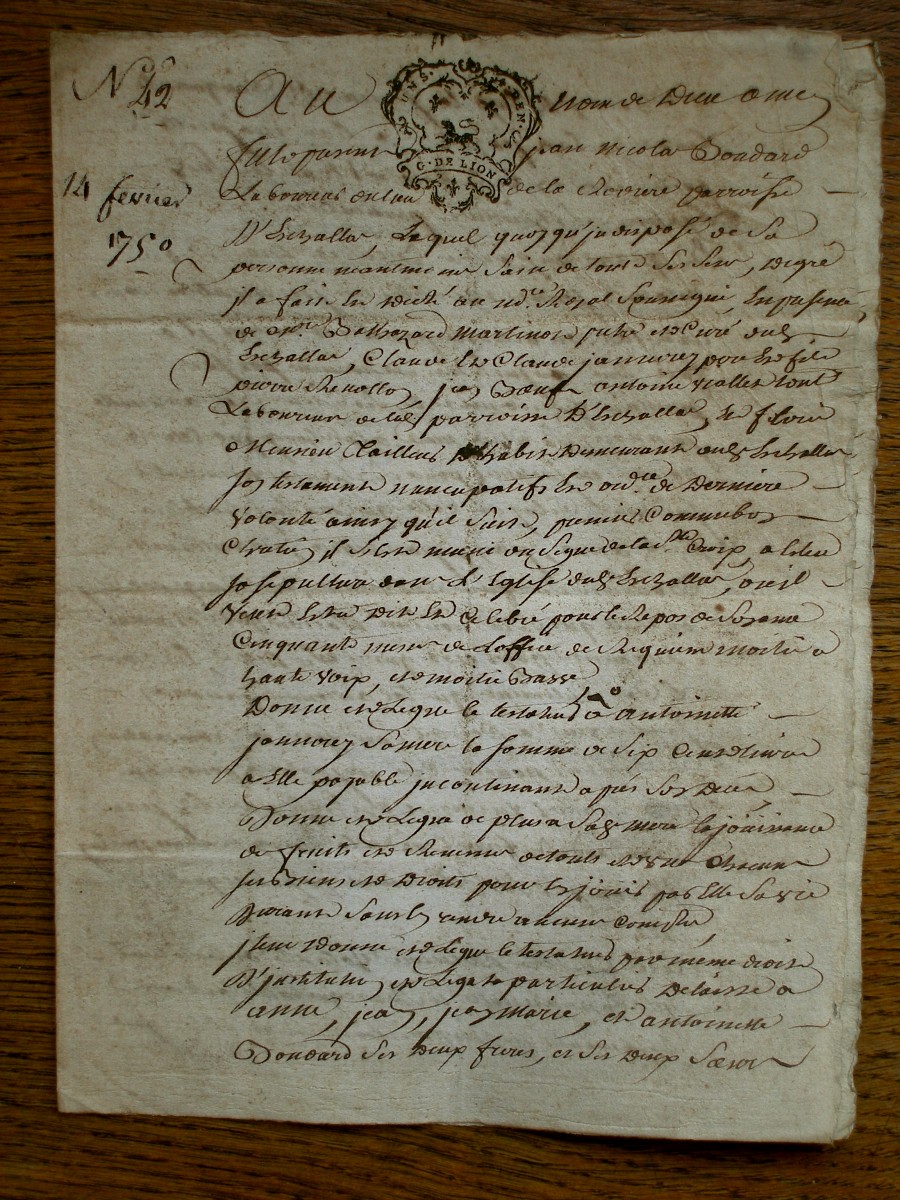 N 42
14 fevrier 1750
UNS. ... EN. C
G. DE LION
Au nom de Dieu amen
fut present jean nicolas Bondard
Laboureur du lieu de la Riviere parroisse
D'Echallas, Lequel quoy qu'indisposé de Sa
personne neantmoins Sain de tous Ses Sens, De gré
il a fait et Dicté au nore Royal Soussigné, En presence
de mre Balthazard Martinot pretre et Curé dud
Echallas, Claude et Claude janvrey pere et fils
pierre jean Bœuf antoine viallet tous
Laboureurs de lad parroisse D'Echallas, et
Tailleur D'habit Demeurant aud Echallas
Son testament nuncupatif et ordce de Derniere
volonté ainsy qu'il Suit, premier Comme bon
Chretien il s'est muni du Signe de la Ste Croix, a Eleu
Sa sepulture dans L'Eglise dud Echallas, ou il
veut Estre Dit et Celebré pour le Repos de Son ame
Cinquante messes de L'office de Requiem moitié a
haute voix, et moitié Basse
Donne et Legue le testateur a antoinette
janvrey Sa mere la somme de Six Cent Livres
a Elle payable incontinant apres Son Decès,
Donne et Legue de plus a Sad mere la joüissance
de fruits et Revenus de touts et un Chacuns
Ses Biens et Droits pour En joüir par Elle Sa vie
Durant Sans En rendre aucun Compte,
jtem Donne et Legue le testateur par même droit
D'institution et Legats particuliers Delaisse a
anne, jean, jean marie, et antoinette
Bondard Ses Deux freres, et Ses Deux Sœurs